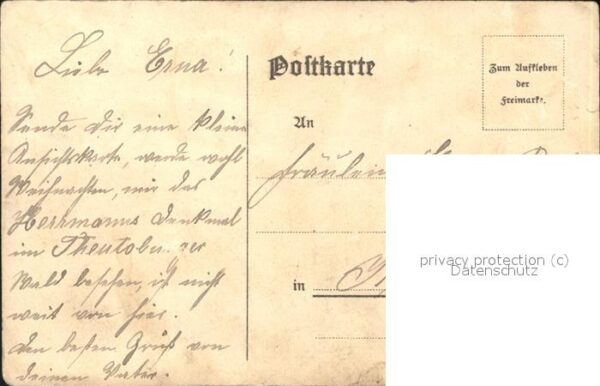 Liebe Erna!
Sende Dir eine kleine
Ansichtskarte, werde wohl
Weihnachten, mir das
Herrmanns Denkmal
im Theutobu ger
Wald besehen, ist nicht
weit von hier.
Den besten Gruß von
deinen Vater.
Postkarte
Zum Aufkleben
der
Freimarke.
An
Fräulein
in
privacy protection (c)
Datenschutz